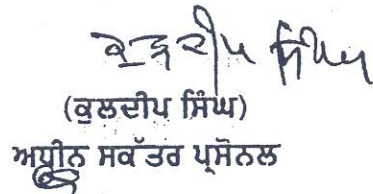 ਕੁਲਦੀਪ ਸਿੰਘ
(ਕੁਲਦੀਪ ਸਿੰਘ)
ਅਧੀਨ ਸਕੱਤਰ ਪ੍ਰਸੋਨਲ